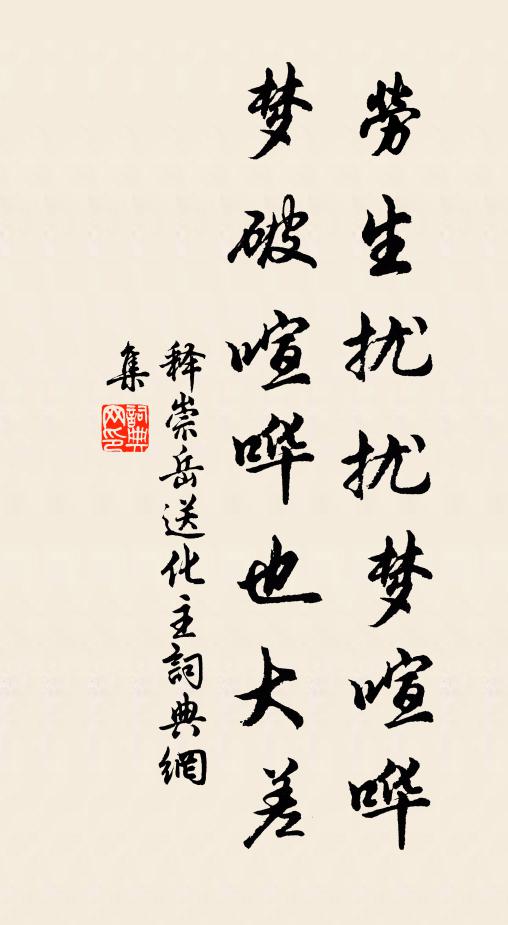 劳生扰扰梦喧哗
梦破喧哗也大差
释崇岳送化主詞典網
集
詞典网印